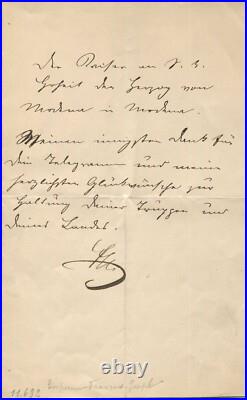 Der Kaiser an S. k.
Hoheit den Herzog von
Modena in Modena.
Meinen innigsten Dank für
Dein Telegramm und meine
herzlichsten Glückwünsche zur
Haltung Deiner Truppen und
Deines Landes.
11.692
Franz Joseph
ebay1.com